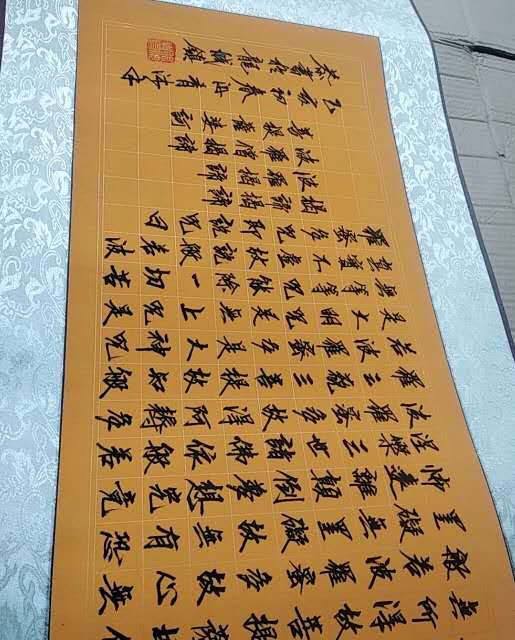 無所得故菩提薩
般若波羅蜜多故心無
罣礙無罣礙故無有恐
怖遠離顛倒夢想究竟
涅槃三世諸佛依般若
波羅蜜多故得阿耨多
羅三藐三菩提故知般
若波羅蜜多是大神咒
是大明咒是無上咒是
無等等咒能除一切苦
真實不虛故說般若波
羅蜜多咒即說咒曰
揭諦揭諦
波羅揭諦
波羅僧揭諦
菩提薩婆訶
乙亥初春
恭書於龍城